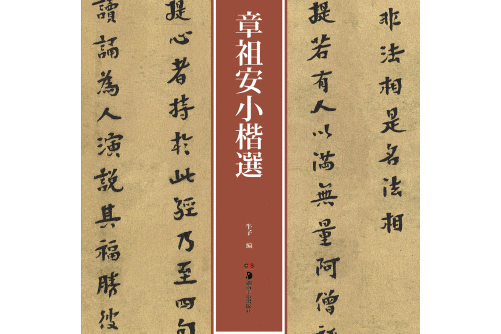 非法相是名法相
提若有人以滿無量阿僧
章祖安小楷選
編
提心者持於此經乃至四句
讀誦為人演說其福勝彼